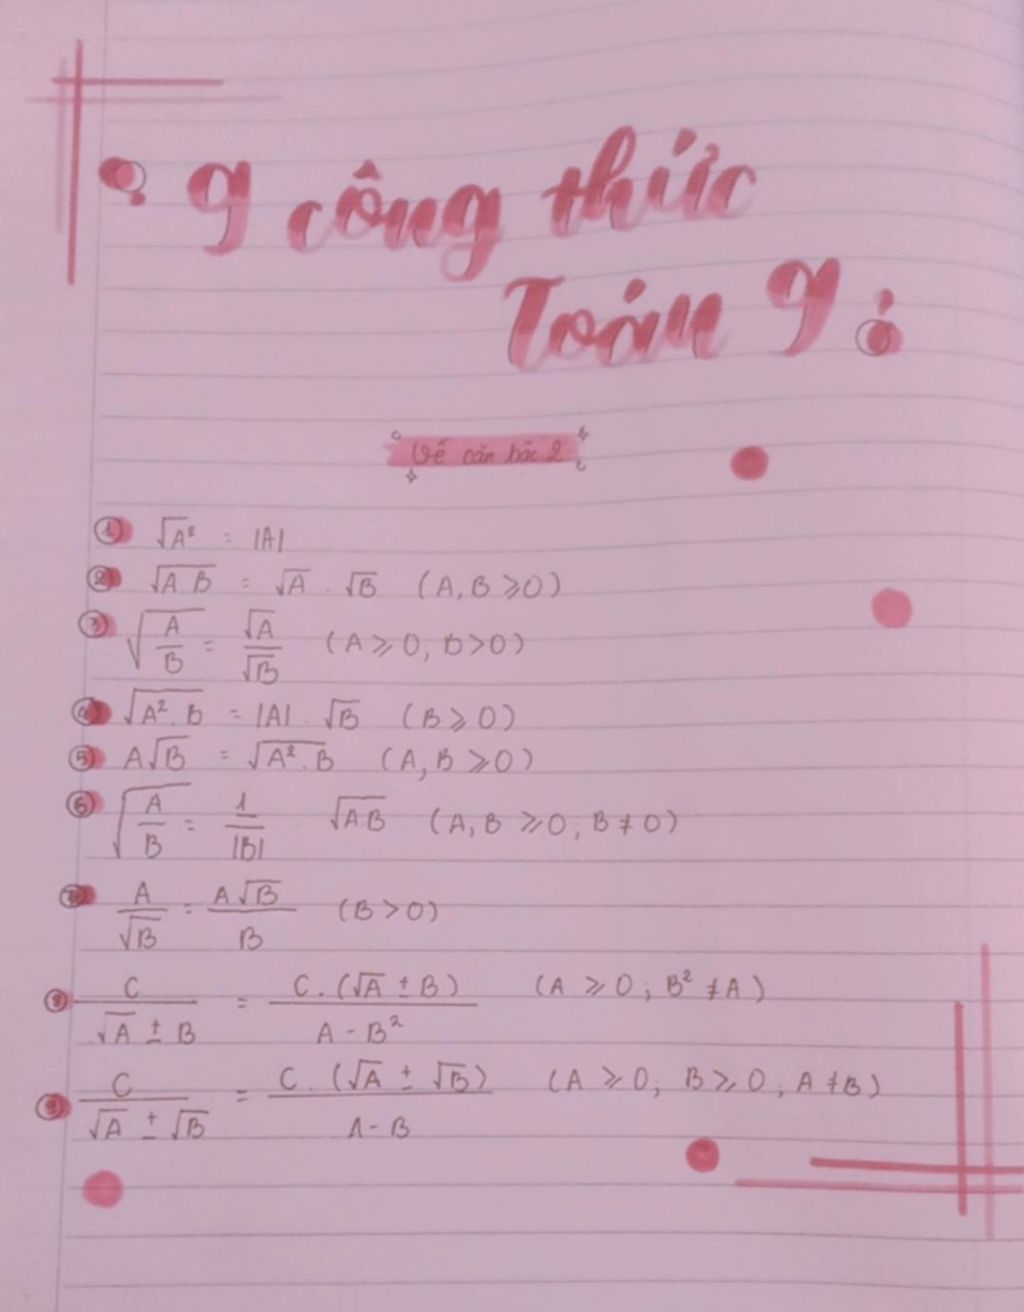 9 công thức
Toán 9
Về căn bậc 2
① √A² = |A|
② √A.B = √A . √B (A, B ⩾ 0)
③ √(A/B) = √A/√B (A ⩾ 0; B > 0)
④ √A².B = |A| . √B (B ⩾ 0)
⑤ A√B = √A².B (A, B ⩾ 0)
⑥ √(A/B) = 1/|B| √AB (A, B ⩾ 0; B ≠ 0)
⑦ A/√B = A√B/B (B > 0)
⑧ C/(√A ± B) = C.(√A ± B)/(A - B²) (A ⩾ 0; B² ≠ A)
⑨ C/(√A ± √B) = C.(√A ± √B)/(A - B) (A ⩾ 0; B ⩾ 0, A ≠ B)